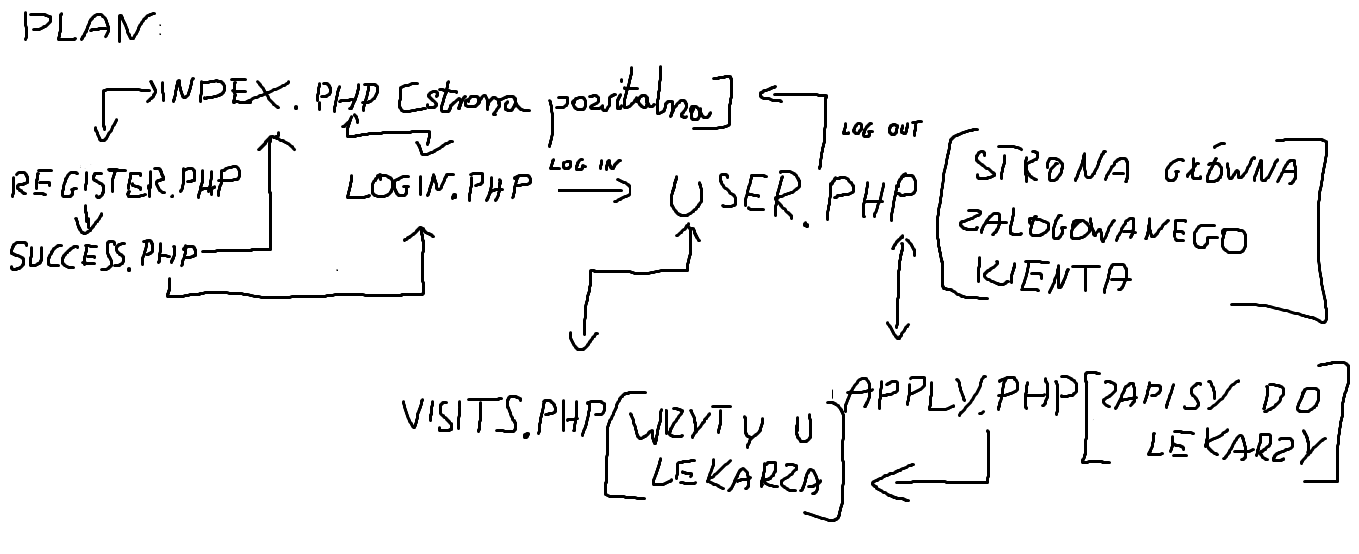 PLAN:
INDEX.PHP [strona pozwitalna]
LOG OUT
REGISTER.PHP
LOGIN.PHP
LOG IN
USER.PHP
STRONA GŁÓWNA
ZALOGOWANEGO
KLIENTA
SUCCESS.PHP
VISITS.PHP [WIZYTY U
LEKARZA]
APPLY.PHP [ZAPISY DO
LEKARZY]